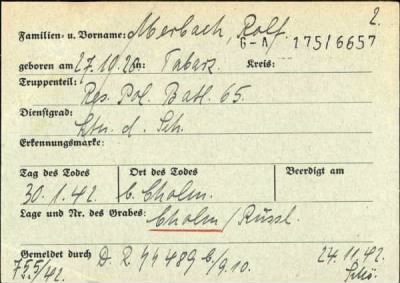 2.
Familien- u. Vorname: Merbach, Rolf.
G-A 175/6657
geboren am 27.10.20 in: Tabarz Kreis:
Truppenteil: Res. Pol. Batl. 65.
Dienstgrad: Ltn. d. Sch.
Erkennungsmarke:
Tag des Todes Ort des Todes Beerdigt am
30.1.42. b. Cholm.
Lage und Nr. des Grabes: Cholm / Russl.
Gemeldet durch D. R. 44 489 b/9.10. 24.11.42.
755/42.